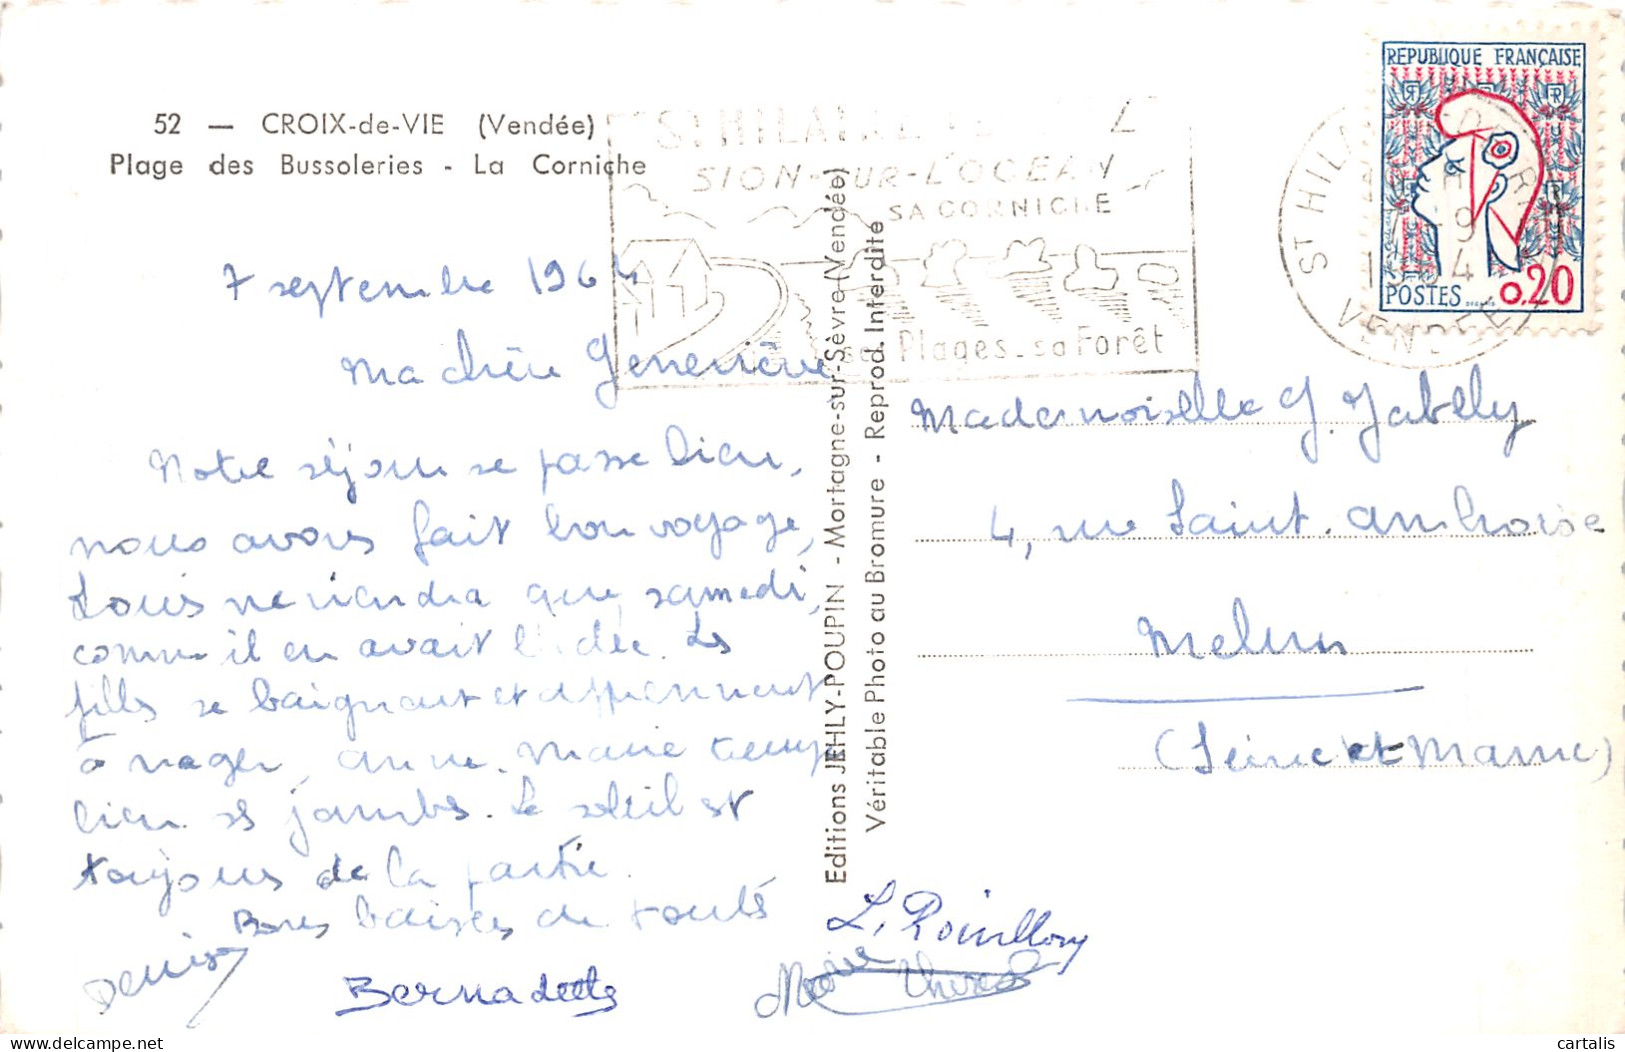 52 — CROIX-de-VIE (Vendée)
Plage des Bussoleries - La Corniche
SION-SUR-L'OCEAN
SA CORNICHE
Plages - sa Forêt
ST HILAIRE DE RIEZ
VENDEE
REPUBLIQUE FRANÇAISE
POSTES 0,20
7 septembre 1964
Ma chère Geneviève
Notre séjour se passe bien,
nous avons fait bon voyage,
Louis ne viendra que samedi,
comme il en avait l'idée. Les
filles se baignent et apprennent
à nager, Anne-Marie trempe
bien ses jambes. Le soleil est
toujours de la partie.
Bons baisers de toutes
Denise
Bernadette
Marie Thérèse
Editions JEHLY-POUPIN - Mortagne-sur-Sèvre (Vendée)
Véritable Photo au Bromure - Reprod. Interdite
Mademoiselle G. Jabely
4, rue Saint-Ambroise
Melun
(Seine et Marne)
cartalis